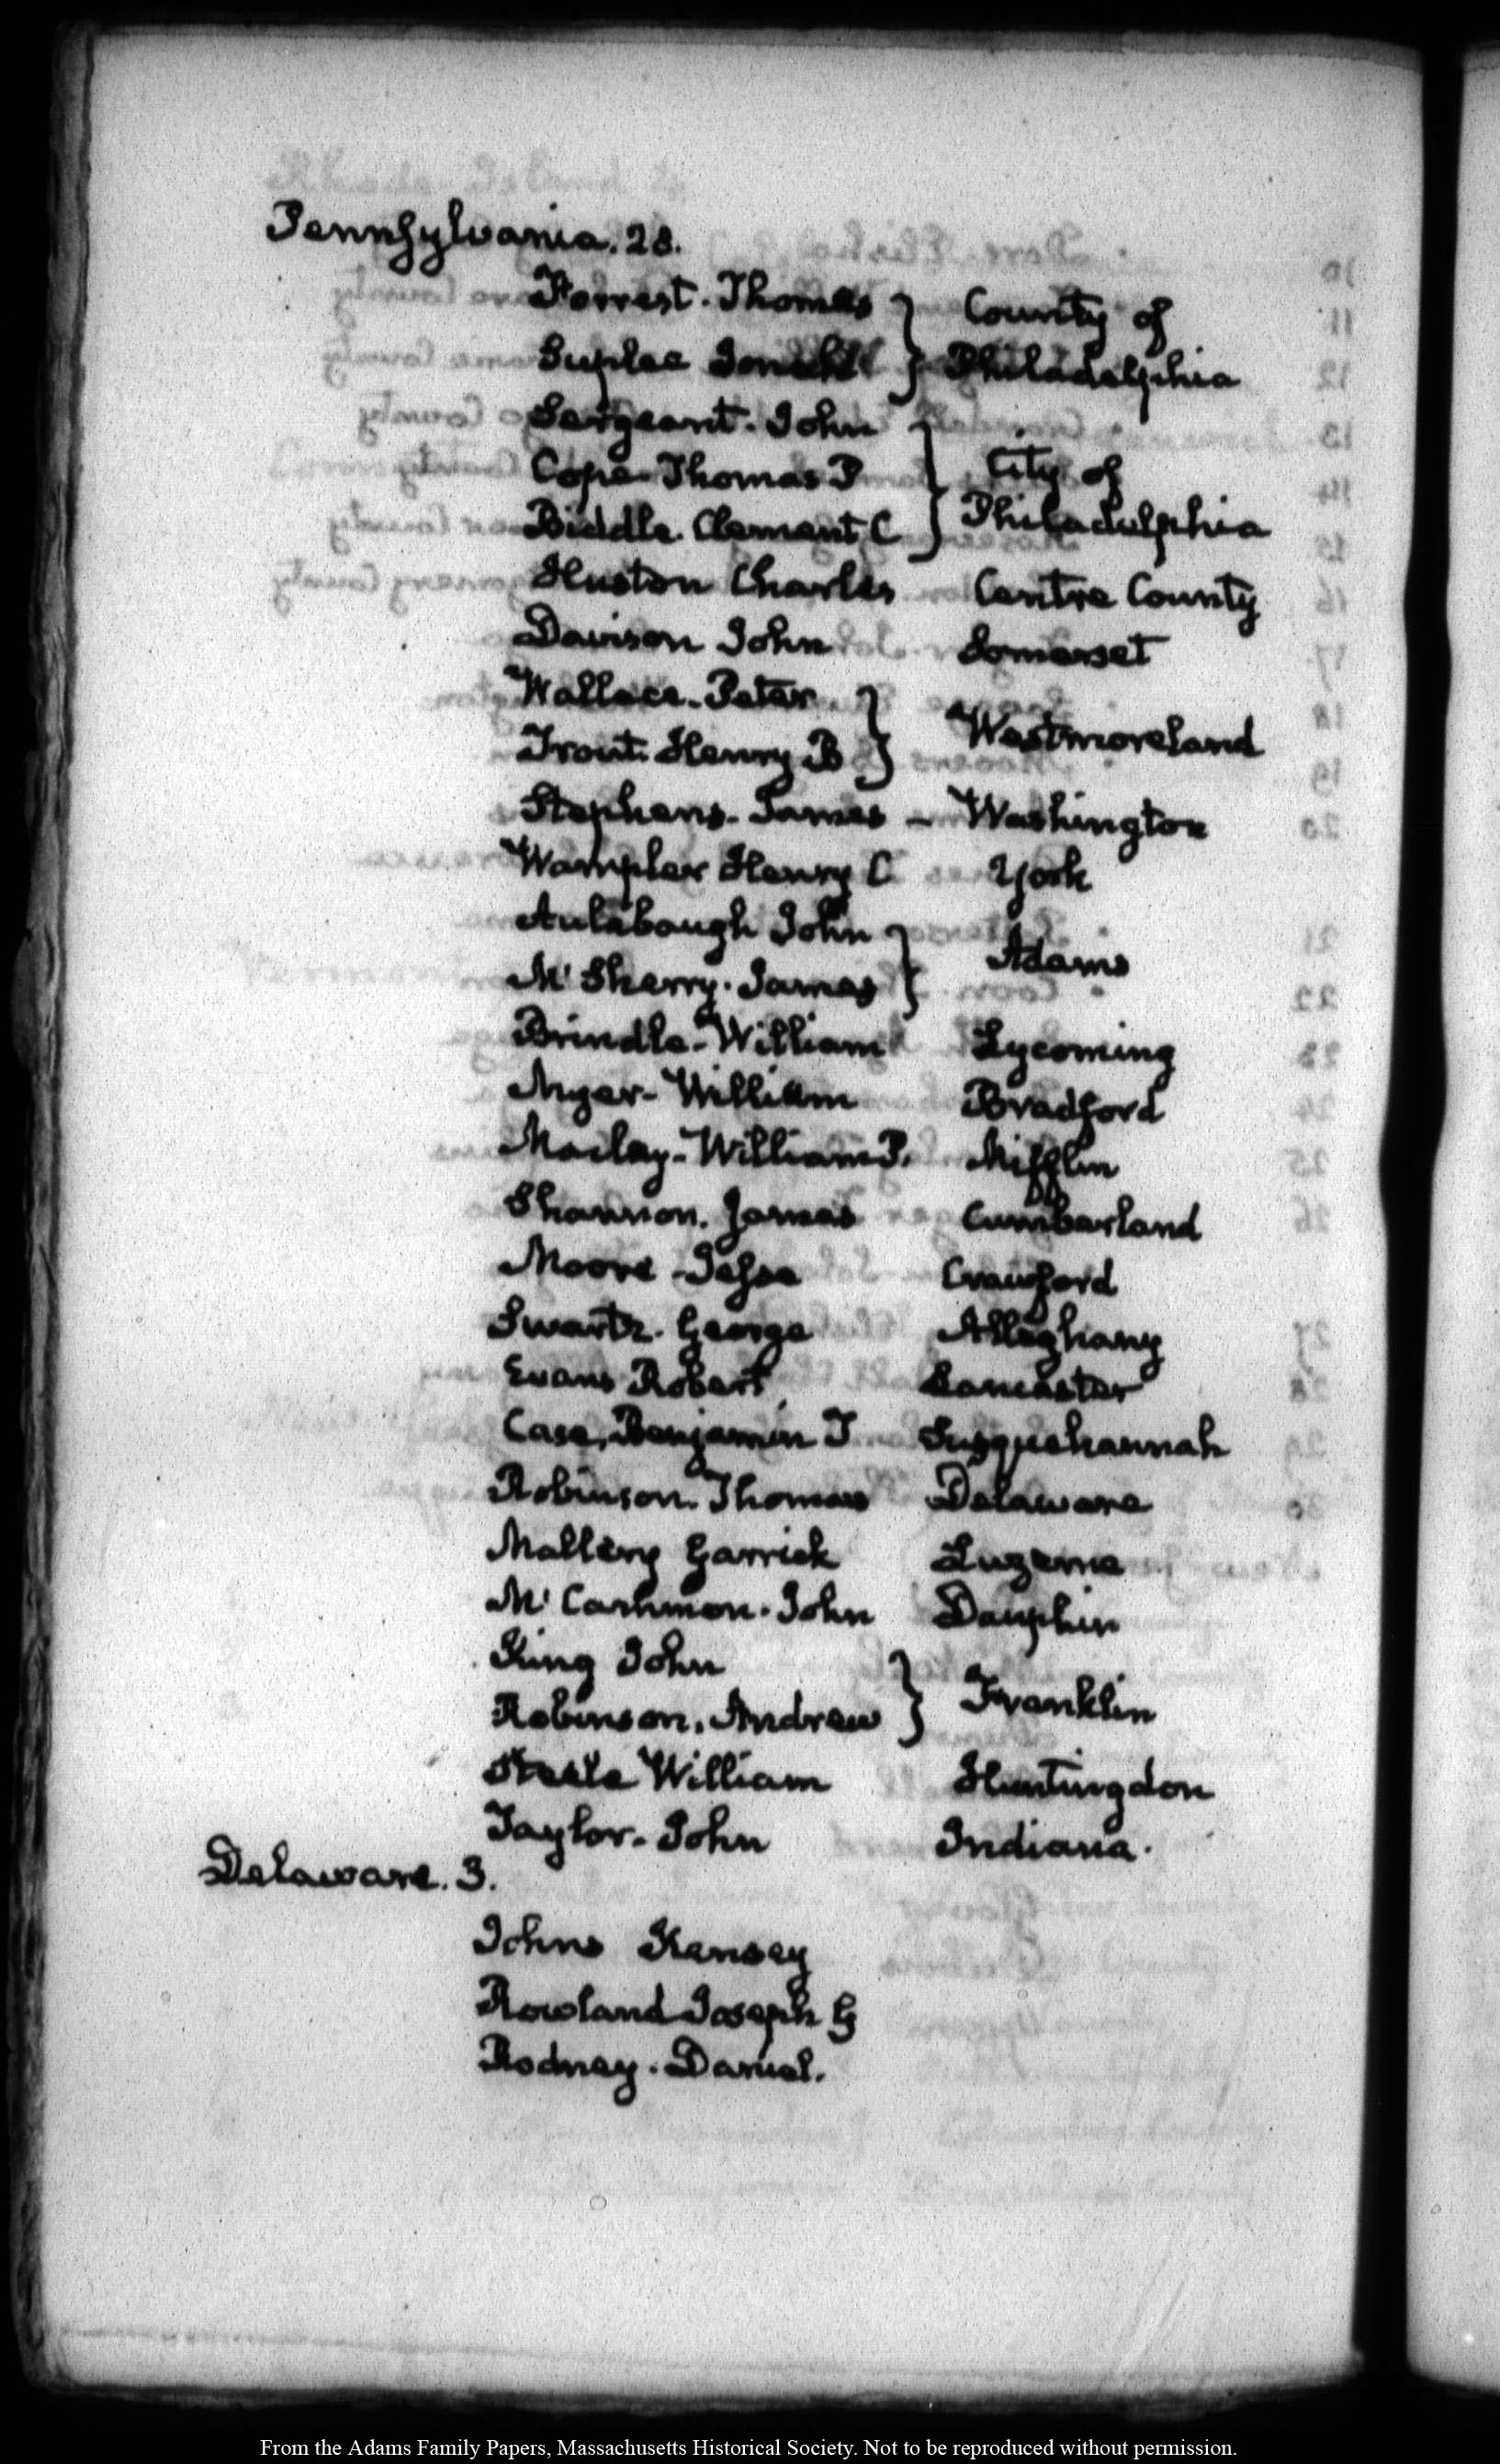 Pennsylvania. 28.
Forrest. Thomas } County of
Suplee } Philadelphia
Sergeant. John
Cope Thomas P } City of
Biddle. Clement C } Philadelphia
Huston Charles Centre County
Davison John Somerset
Wallace. Peter
Trout. Henry B } Westmoreland
Stephens. James - Washington
Wampler Henry C York
Aulabaugh John
McSherry. James } Adams
Brindle. William Lycoming
Myer- William Bradford
Maclay- William P. Mifflin
Shannon. James Cumberland
Moore Jesse Crawford
Swartz. George Alleghany
Evans Robert Lancaster
Case, Benjamin T Susquehannah
Robinson. Thomas Delaware
Mallery Garrick Luzerne
Mc Cammon. John Dauphin
King John
Robinson, Andrew } Franklin
Steele William Huntingdon
Taylor- John Indiana.
Delaware. 3.
Johns Kensey
Rowland Joseph G
Rodney. Daniel.
From the Adams Family Papers, Massachusetts Historical Society. Not to be reproduced without permission.